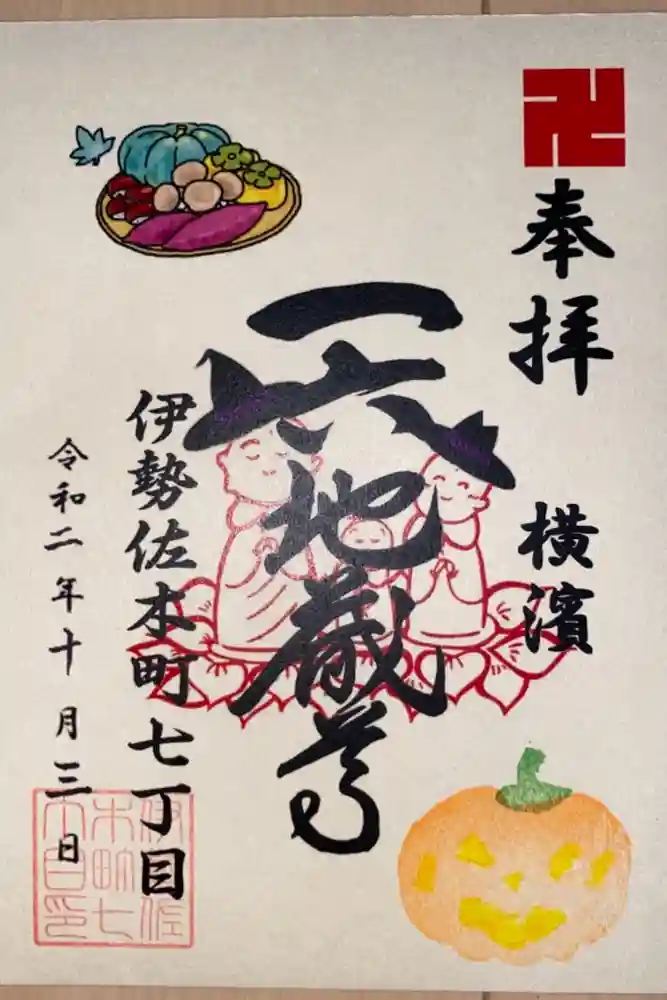 卍
奉拝
横濱
一六地蔵尊
伊勢佐木町七丁目
令和二年十月三日